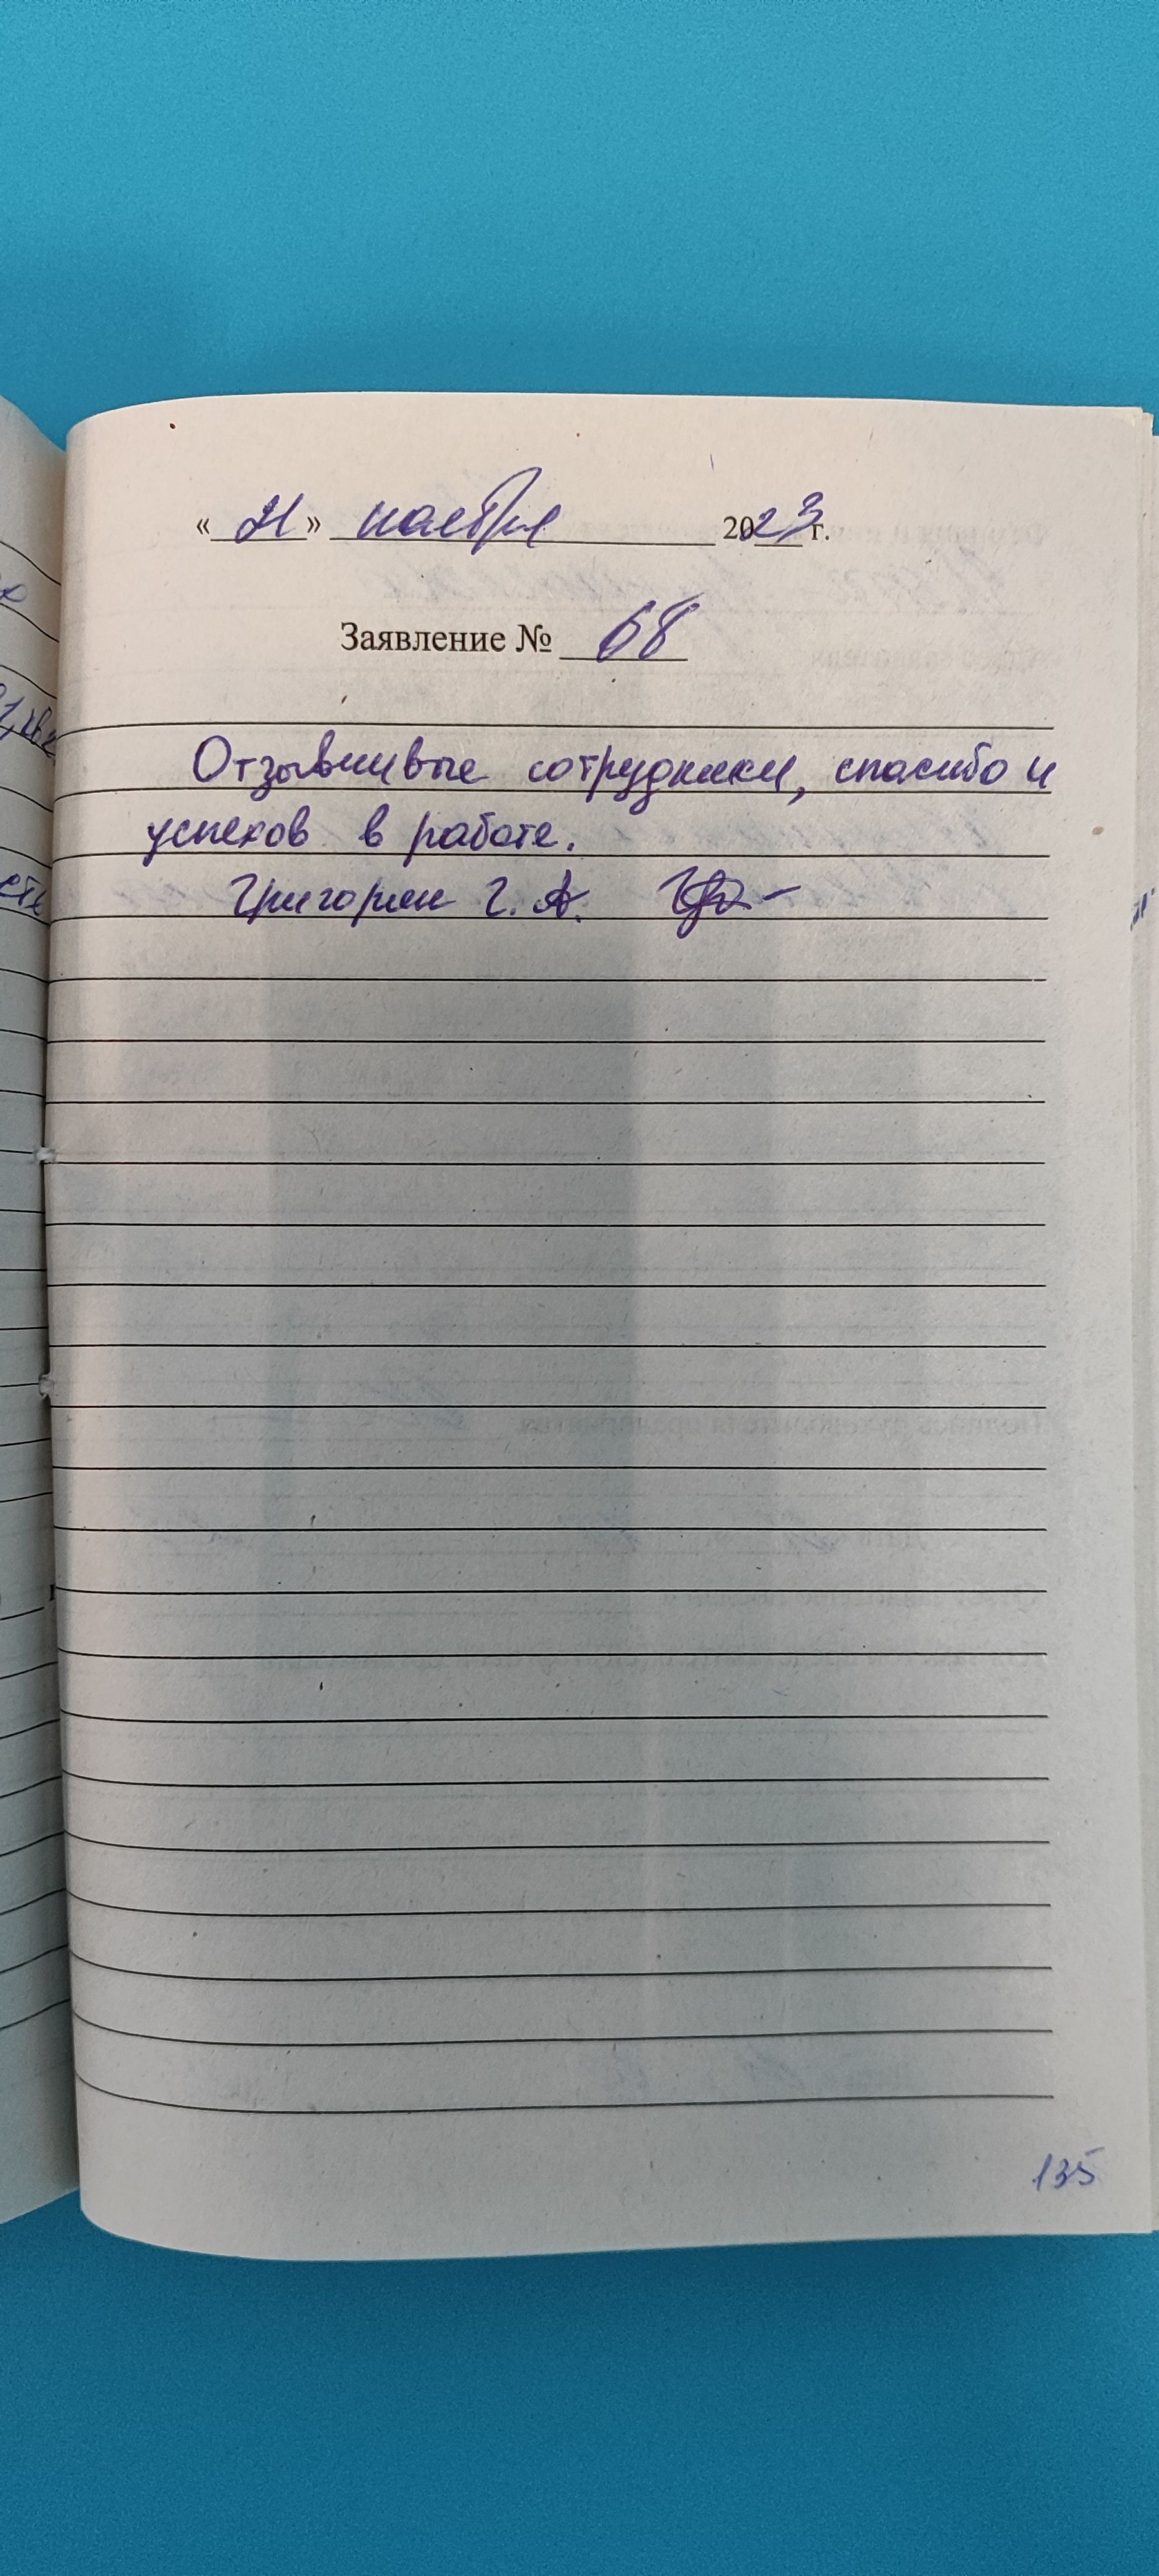 « 21 » ноября 2023 г.
Заявление № 68
Отзывчивые сотрудники, спасибо и
успехов в работе.
Григорян Г. А.
135